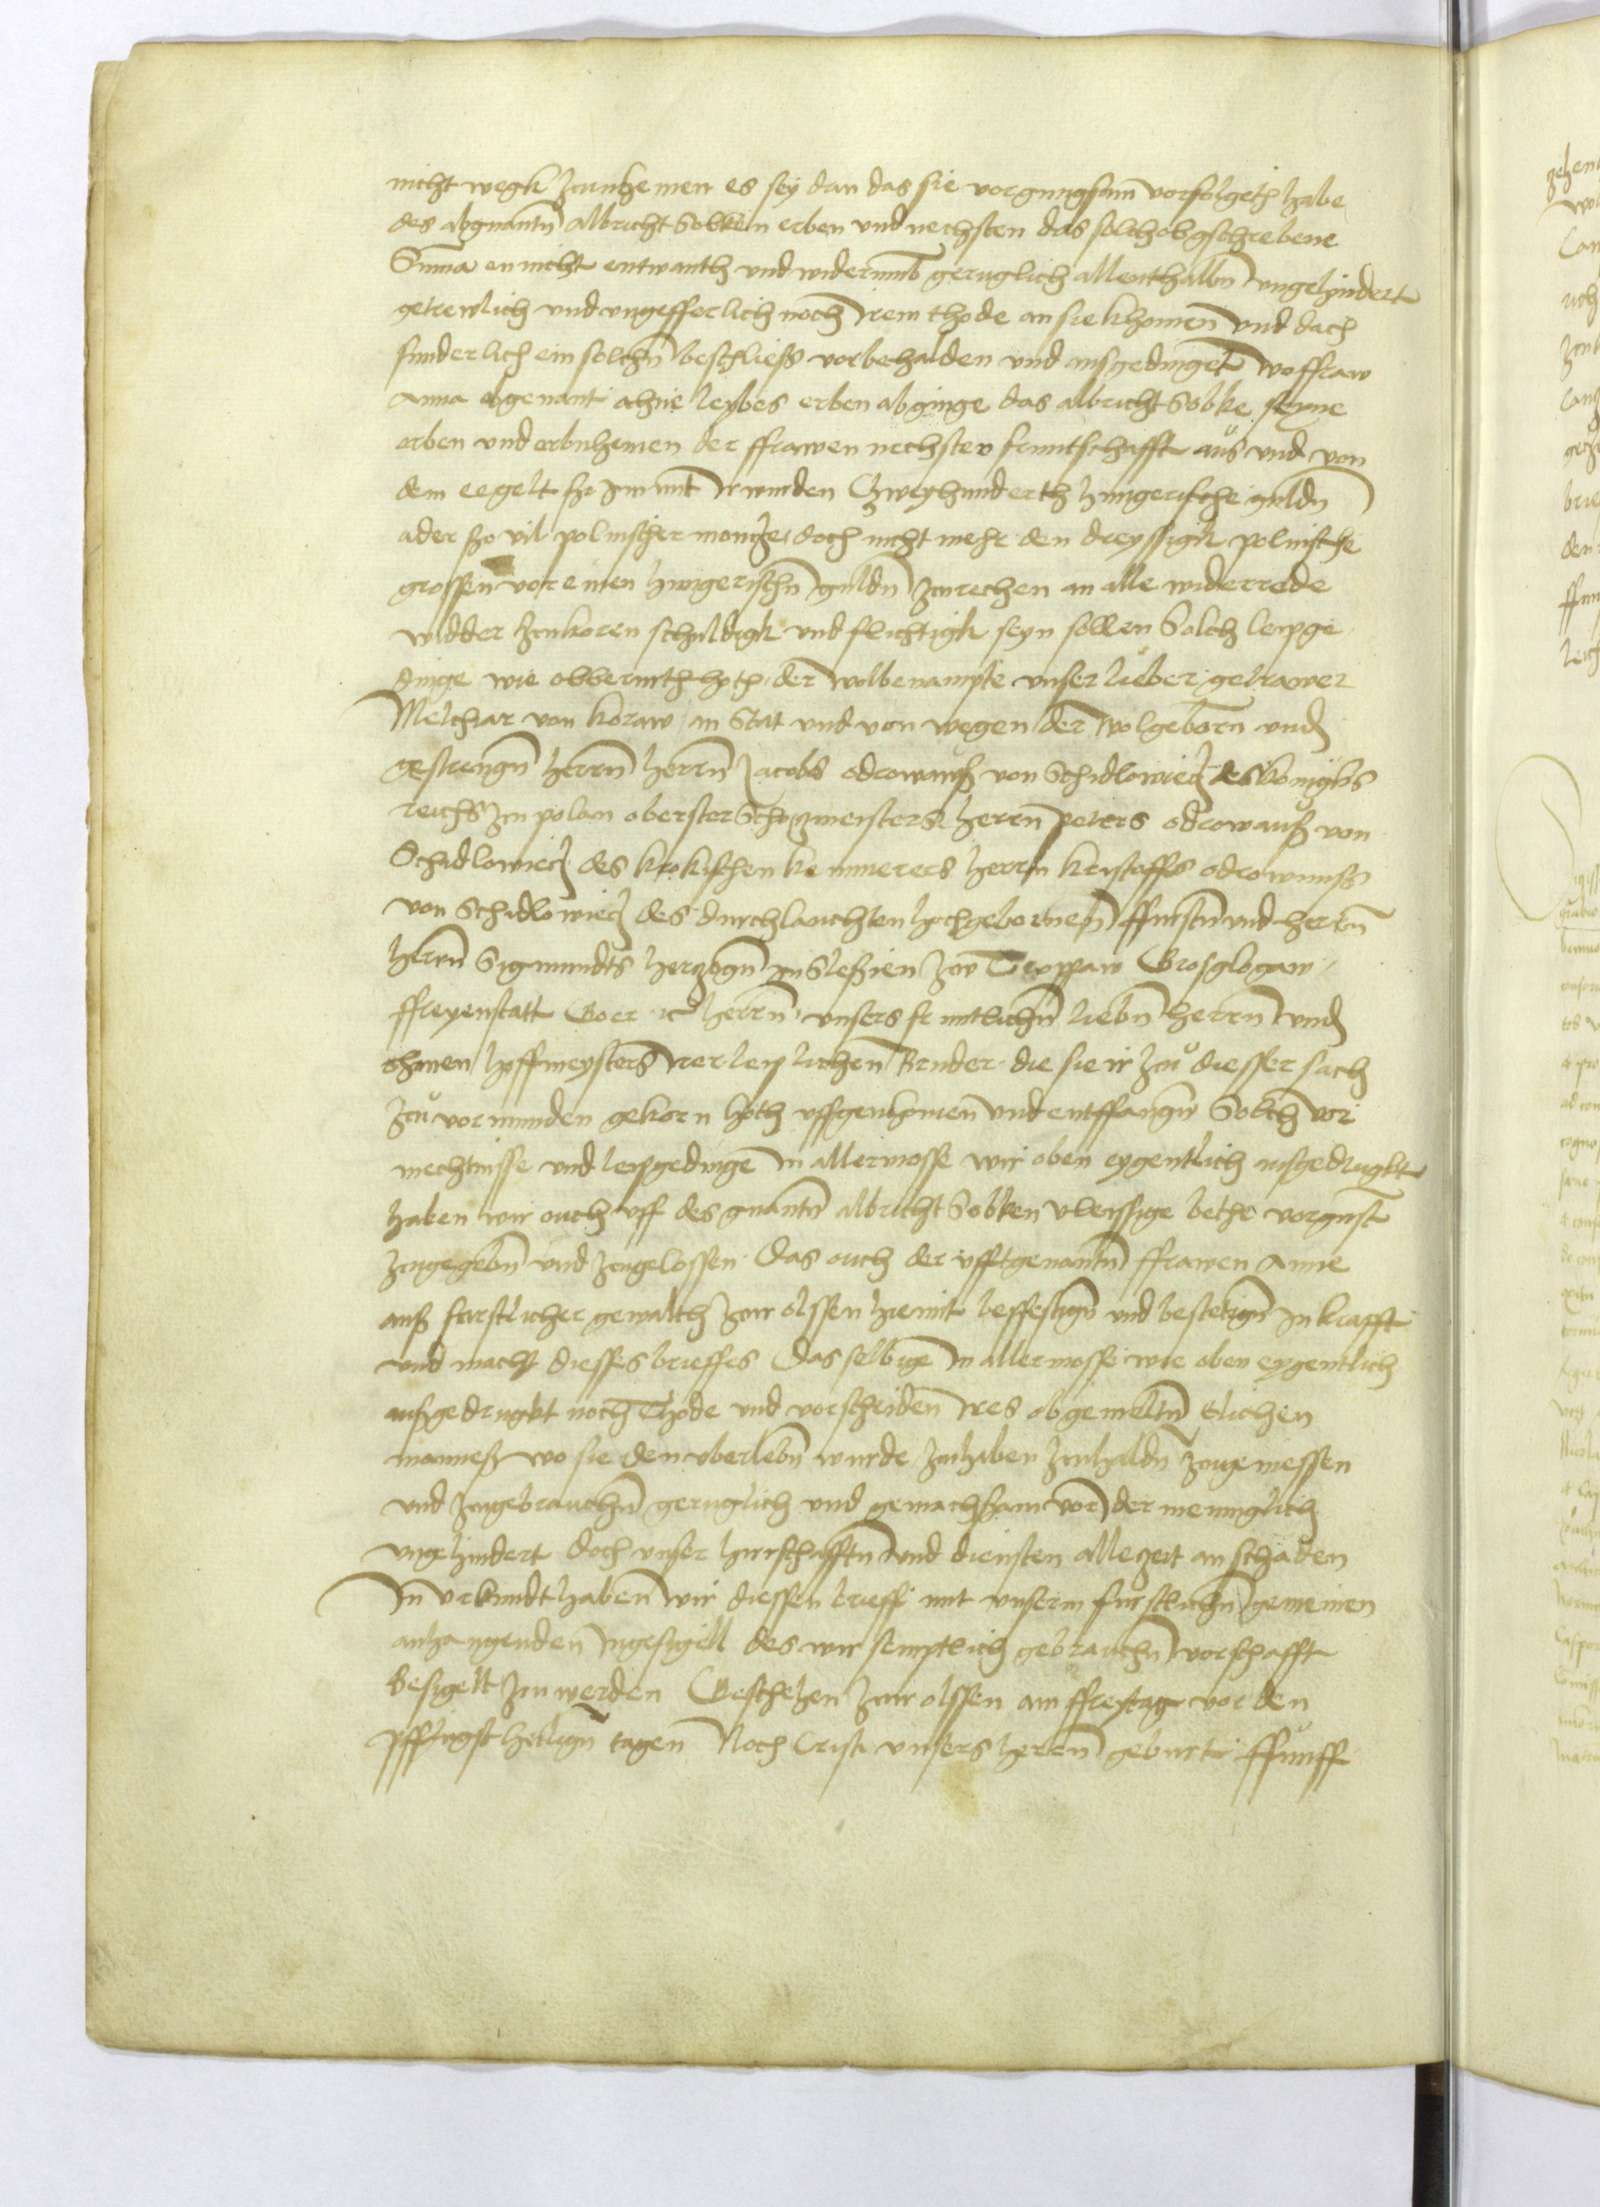 nicht wegk zcunhemen es sey dan das sie vorgungsam vorsolgeth habe
des abgnantn albricht Sobken erben und nechsten das solch obgschrebene
Suma en nicht entwanth und widerumb geruglich allenthalbn ungehindert
getrewlich und ungefferlich noch irem thode an sie khomen und doch
sunderlich ein solchn beschliess vorbehalden und ausgedinget wo ffraw
Anna obgenant ahne leybes erben abginge das albricht Sobke seyne
erben und erbnhemen der ffrawen nechsten fruntschafft aus und von
dem eegelt so im mit wurden Czweyhunderth hungerische guldn
ader szo vil polnischer moncze doch nicht mehr den dreyssigk polnische
grossen vor einen hungerischn guldn zcurechen an alle widerrede
widder zcukoren schuldigk und flichtigk seyn sollen Solch leipge
dinge wie obberurth hoth der wolbenampte unser lieber getrawer
Melchar von koraw an Stat und von wegen der wolgeborn und
gestrengn herrn herrn Jacobs odrowansz von Schidlowiecz des konigks
reichs zcu polan oberster Schczmeisters herrn peters odrowansz von
Schidlowiecz des krokischen kemmerers herrn kristoffs odrowansz
von Schidlowiecz des durchlauchten hochgebornenn ffursten und herrn
herrn Sigmundts herzogn in Slesien zcu Troppaw Grosglogaw
ffreyenstatt Goer etc herrn unsers fruntlichn liebn herrn und
ohmen hoffmeysters irer leiplichen Bruder die sie ir zcu diesser sach
zcu vormunden gekorn hoth uffgenhomen und entffangen Solch vor
mechtnisse und leipgedinge in allermosse wir oben eygentlich ausgedrugkt
haben wir ouch uff des gnantn albricht Sobken vleyssige bethe vorgunst
zcugegebn und zcugelossen Das ouch der ufftgenantn ffrawen Anne
ausz furstlicher gewalth zcur olssen hiemit beffestign und bestetign In krafft
und macht diesses brieffes Das selbige in allermosse wie oben eygentlich
auszgedrugkt noch Thode und vorscheiden ires obgemeltn Elichen
mannesz wo sie den uberlebn wurde zcuhaben zcuhaldn zcugenissen
und zcugebrauchn geruglich und gemachsam vor der menniglich
ungehindert Doch unser herschafftn und diensten allezeit an schaden
In urkundt haben wir diessen brieff mit unserm furstlichn gemeinen
anhangenden Ingesigell des wir semptlich gebrauchn vorschafft
besigelt zcu werden Geschehen zcur olssen am ffreytag vor den
pffingst heilign tagen Noch Cristi unsers herrn geburt ffunff